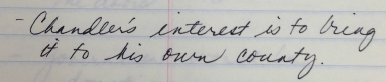 - Chandler's interest is to bring
it to his own county.